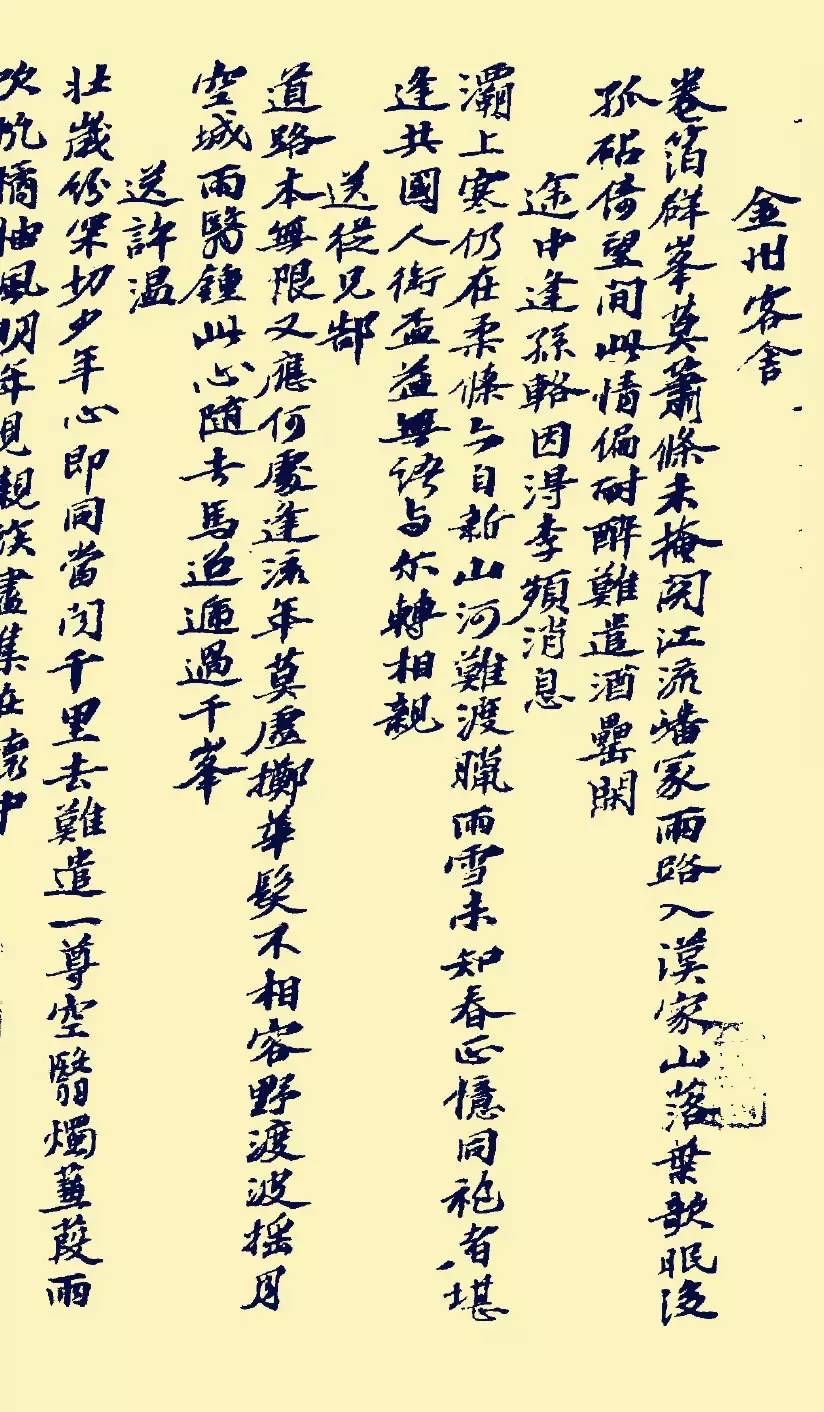 金州客舍
卷箔群峯莫蕭條未掩関江流嶓冢雨路入漢家山落葉欹眠後
孤砧倚望間此情偏耐醉難遣酒罍閑
途中逢孫輅因得李頻消息
灞上寒仍在柔條亦自新山河難渡臘雨雪未知春正憶同袍者堪
逢共國人銜盃益無語与尔轉相親
送從兄郜
道路本無限又應何處逢流年莫虛擲華髮不相容野渡波搖月
空城雨翳鍾此心隨去馬迢遞過千峯
送許温
壯歲份深切少年心即同當聞千里去難遣一尊空翳燭蒹葭雨
吹帆橘柚風明年見親族盡集在懷中